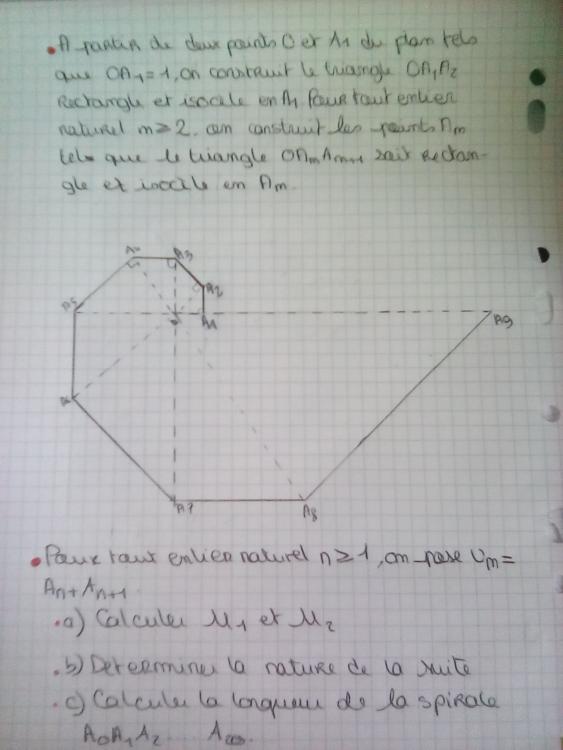 A partir de deux points O et A1 du plan tels
que OA1=1, on construit le triangle OA1A2
Rectangle et isocèle en A1 Pour tout entier
naturel n≥2. on construit les points An
tels que le triangle OAnAn+1 soit Rectan-
gle et isocèle en An.
A4
A3
A2
A5
O
A1
A9
A6
A7
A8
Pour tout entier naturel n≥1, on pose Un=
An+An+1
a) Calculer U1 et U2
b) Determiner la nature de la suite
c) Calculer la longueur de la spirale
A0A1A2.... A200.